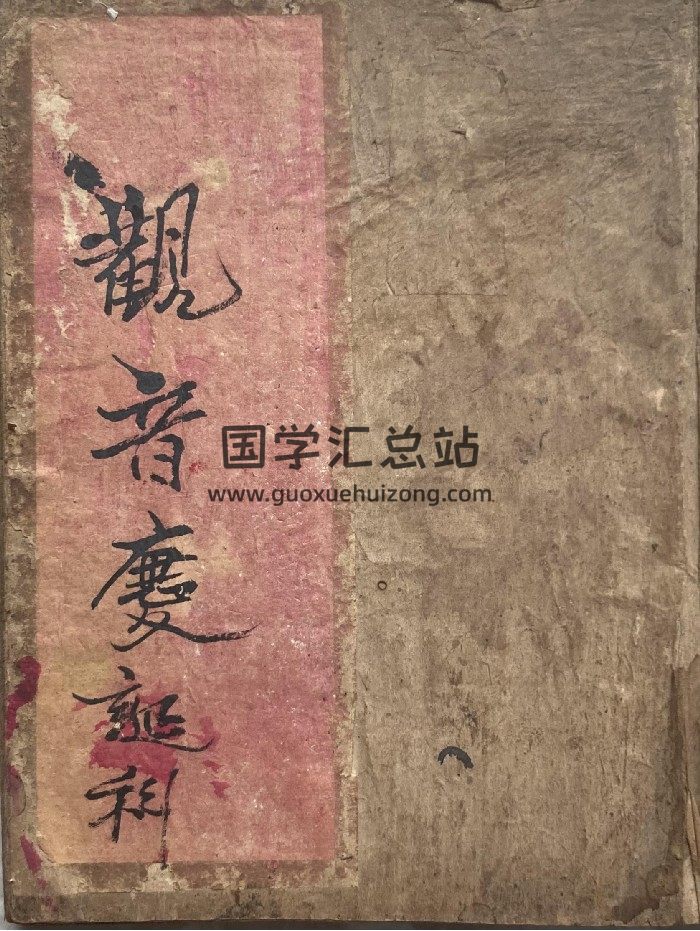 觀音慶誕科
国学汇总站
www.guoxuehuizong.com